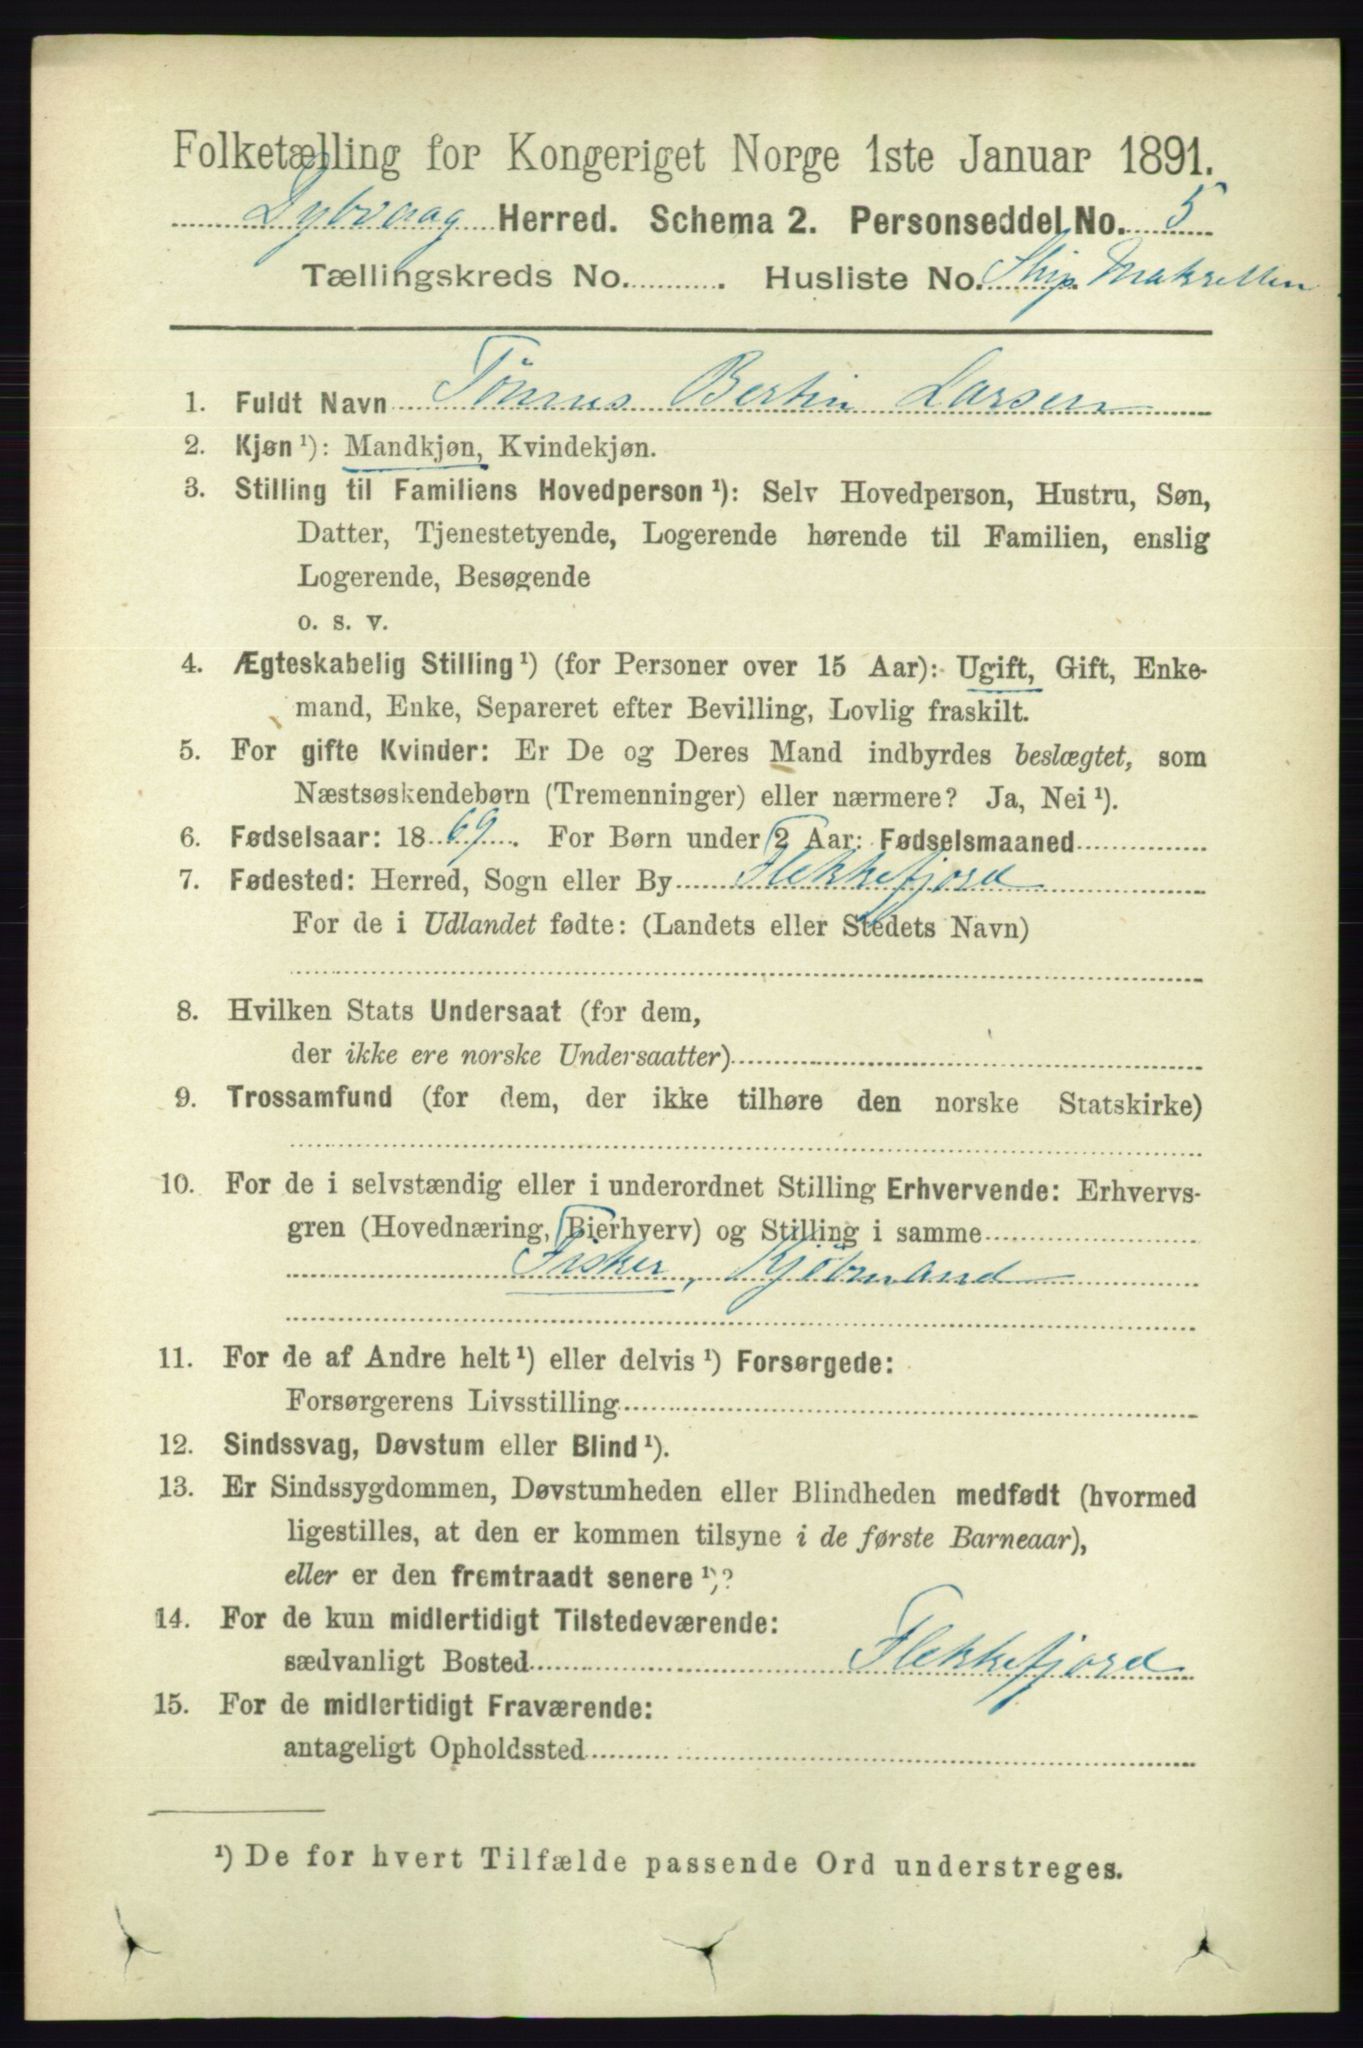 Folketælling for Kongeriget Norge 1ste Januar 1891.
Dybvaag Herred. Schema 2. Personseddel No. 5
Tællingskreds No. . Husliste No. Skip. Makrellen
1. Fuldt Navn Tønnes Bertin Larsen
2. Kjøn ¹): Mandkjøn, Kvindekjøn.
3. Stilling til Familiens Hovedperson ¹): Selv Hovedperson, Hustru, Søn,
Datter, Tjenestetyende, Logerende hørende til Familien, enslig
Logerende, Besøgende
o. s. v.
4. Ægteskabelig Stilling ¹) (for Personer over 15 Aar): Ugift, Gift, Enke-
mand, Enke, Separeret efter Bevilling, Lovlig fraskilt.
5. For gifte Kvinder: Er De og Deres Mand indbyrdes beslægtet, som
Næstsøskendebørn (Tremenninger) eller nærmere? Ja, Nei ¹).
6. Fødselsaar: 1869. For Børn under 2 Aar: Fødselsmaaned
7. Fødested: Herred, Sogn eller By Flekkefjord
For de i Udlandet fødte: (Landets eller Stedets Navn)
8. Hvilken Stats Undersaat (for dem,
der ikke ere norske Undersaatter)
9. Trossamfund (for dem, der ikke tilhøre den norske Statskirke)
10. For de i selvstændig eller i underordnet Stilling Erhvervende: Erhvervs-
gren (Hovednæring, Bierhverv) og Stilling i samme
Fisker, Kjøbmand
11. For de af Andre helt ¹) eller delvis ¹) Forsørgede:
Forsørgerens Livsstilling
12. Sindssvag, Døvstum eller Blind ¹).
13. Er Sindssygdommen, Døvstumheden eller Blindheden medfødt (hvormed
ligestilles, at den er kommen tilsyne i de første Barneaar),
eller er den fremtraadt senere ¹)?
14. For de kun midlertidigt Tilstedeværende:
sædvanligt Bosted Flekkefjord
15. For de midlertidigt Fraværende:
antageligt Opholdssted
¹) De for hvert Tilfælde passende Ord understreges.